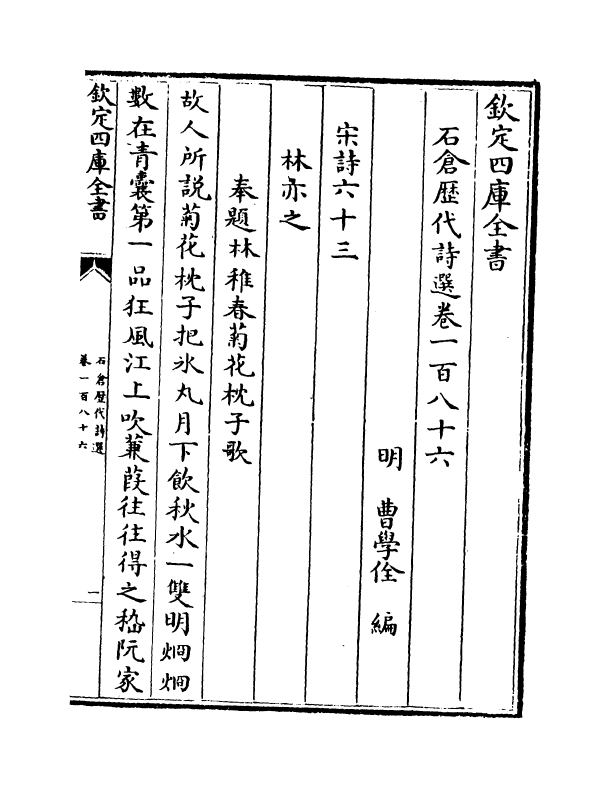 欽定四庫全書
石倉歴代詩選卷一百八十六
明 曹學佺 編
宋詩六十三
林亦之
奉題林稚春菊花枕子歌
故人所説菊花枕子把氷丸月下飲秋水一雙明烱烱
數在青囊第一品狂風江上吹蒹葭往往得之嵇阮家
欽定四庫全書
石倉歴代詩選
卷一百八十六
二